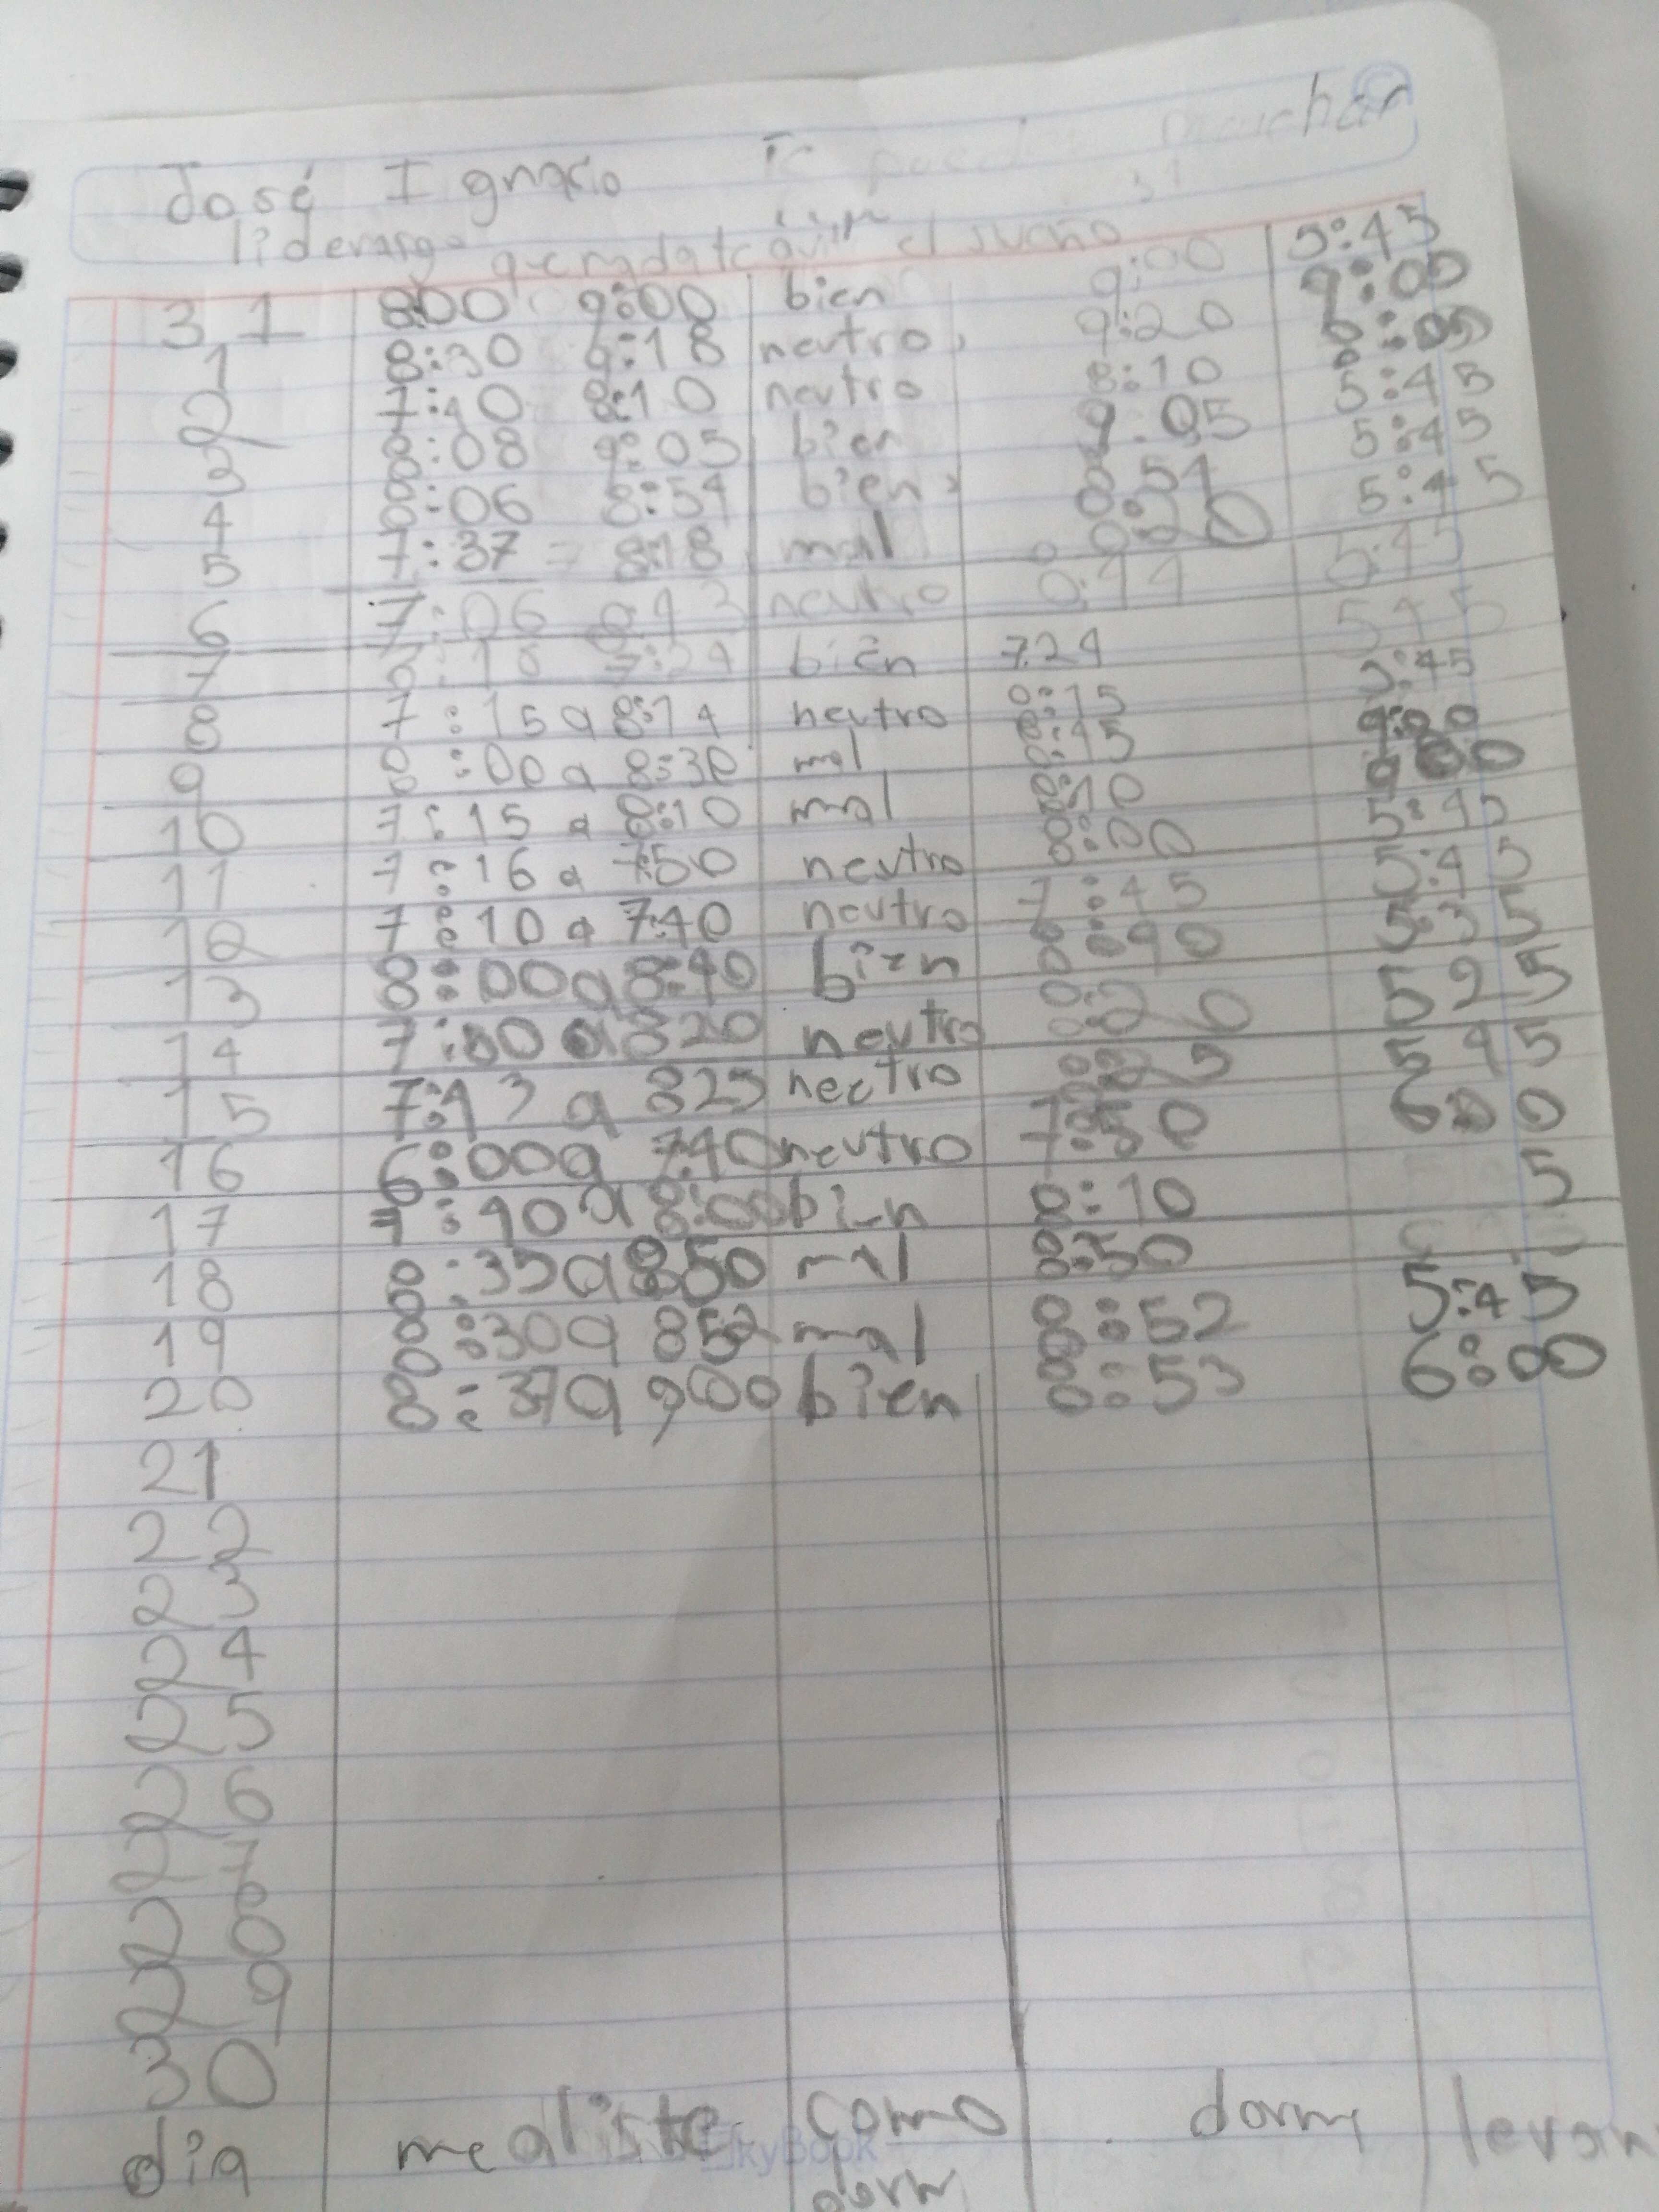 José Ignacio
el sueño
31 8:00 9:00 bien 9:00 5:45
1 8:30 9:18 neutro 9:20 9:00
2 7:40 8:10 neutro 8:10
3 8:08 9:05 bien 9:05 5:45
4 8:06 8:54 bien 8:54 5:45
5 7:37 - 8:18 mal 8:20 5:45
6 7:06 neutro 5:45
7 7:24 bien 7:24 5 4 5
8 7:15 a 8:14 neutro 8:15 5:45
9 8:00 a 8:30 mal
10 7:15 a 8:10 mal 8:10 9:00
11 7:16 a 7:50 neutro 8:00 5:45
12 7:10 a 7:40 neutro 7:45 5:45
13 8:00 a 8:40 bien 8:40 5:35
14 a 820 neutro 8:20 5 2 5
15 a 825 neutro 8:25 5 4 5
16 6:00 a 7:40 neutro 7:50 6:00
17 7:40 a 8:00 bien 8:10 5
18 8:35 a 850 mal 8:50
19 8:30 a 852 mal 8:52 5:45
20 a 900 bien 8:53 6:00
21
22
23
24
25
26
27
28
29
30
dia me aliste como dormi levan
dormi